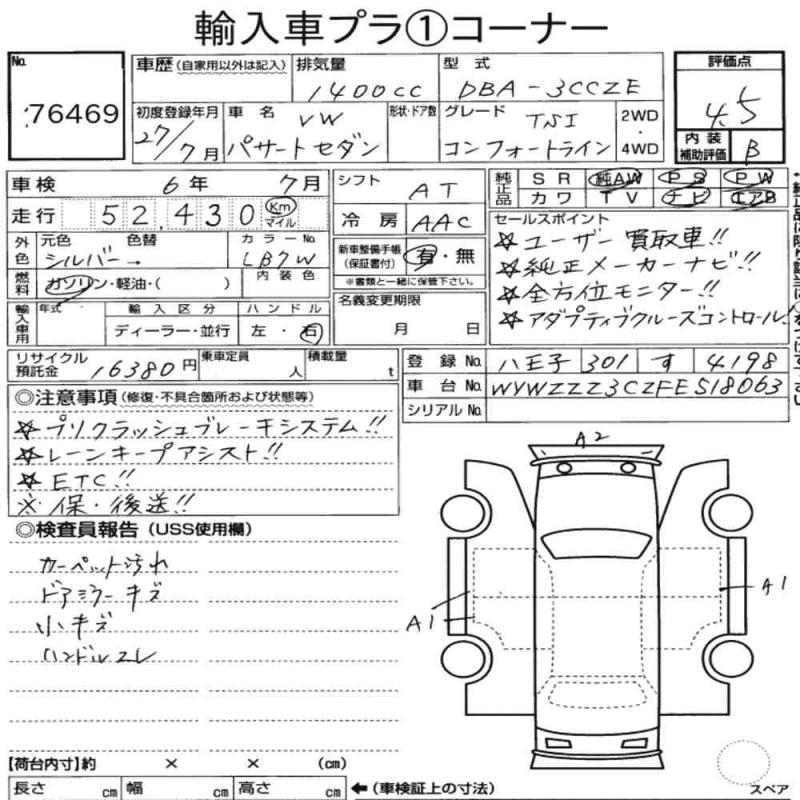 輸入車プラ①コーナー
No. 76469
車歴(自家用以外は記入) 排気量 1400cc 型式 DBA-3CCZE 評価点 4.5
初度登録年月 27/7月 車名 VW パサートセダン 形状・ドア数 グレード TSI コンフォートライン 2WD・4WD 内装補助評価 B
車検 6年 7月 シフト AT 純正品 SR 純AW PS PW
走行 52,430 Km マイル 冷房 AAC カワ TV ナビ エアB
外色 元色 シルバー 色替 カラーNo. LB7W 新車整備手帳(保証書付) 有・無 ※書類と一緒に保管下さい。
セールスポイント
☆ユーザー買取車!!
☆純正メーカーナビ!!
☆全方位モニター!!
☆アダプティブクルーズコントロール!
燃料 ガソリン・軽油・( ) 内装色
名義変更期限 月 日
輸入車用 年式 輸入区分 ディーラー・並行 ハンドル 左・右
リサイクル預託金 16380円 乗車定員 人 積載量 t
登録No. 八王子 301 す 4198
車台No. WVWZZZ3CZFE518063
シリアルNo.
◎注意事項(修復・不具合箇所および状態等)
☆プリクラッシュブレーキシステム!!
☆レーンキープアシスト!!
☆ETC!!
※保・後送!!
◎検査員報告(USS使用欄)
カーペット汚れ
ドアミラーキズ
小キズ
ハンドルスレ
A2
A1
A1
【荷台内寸】約 × × (cm)
長さ cm 幅 cm 高さ cm ←(車検証上の寸法)
スペア